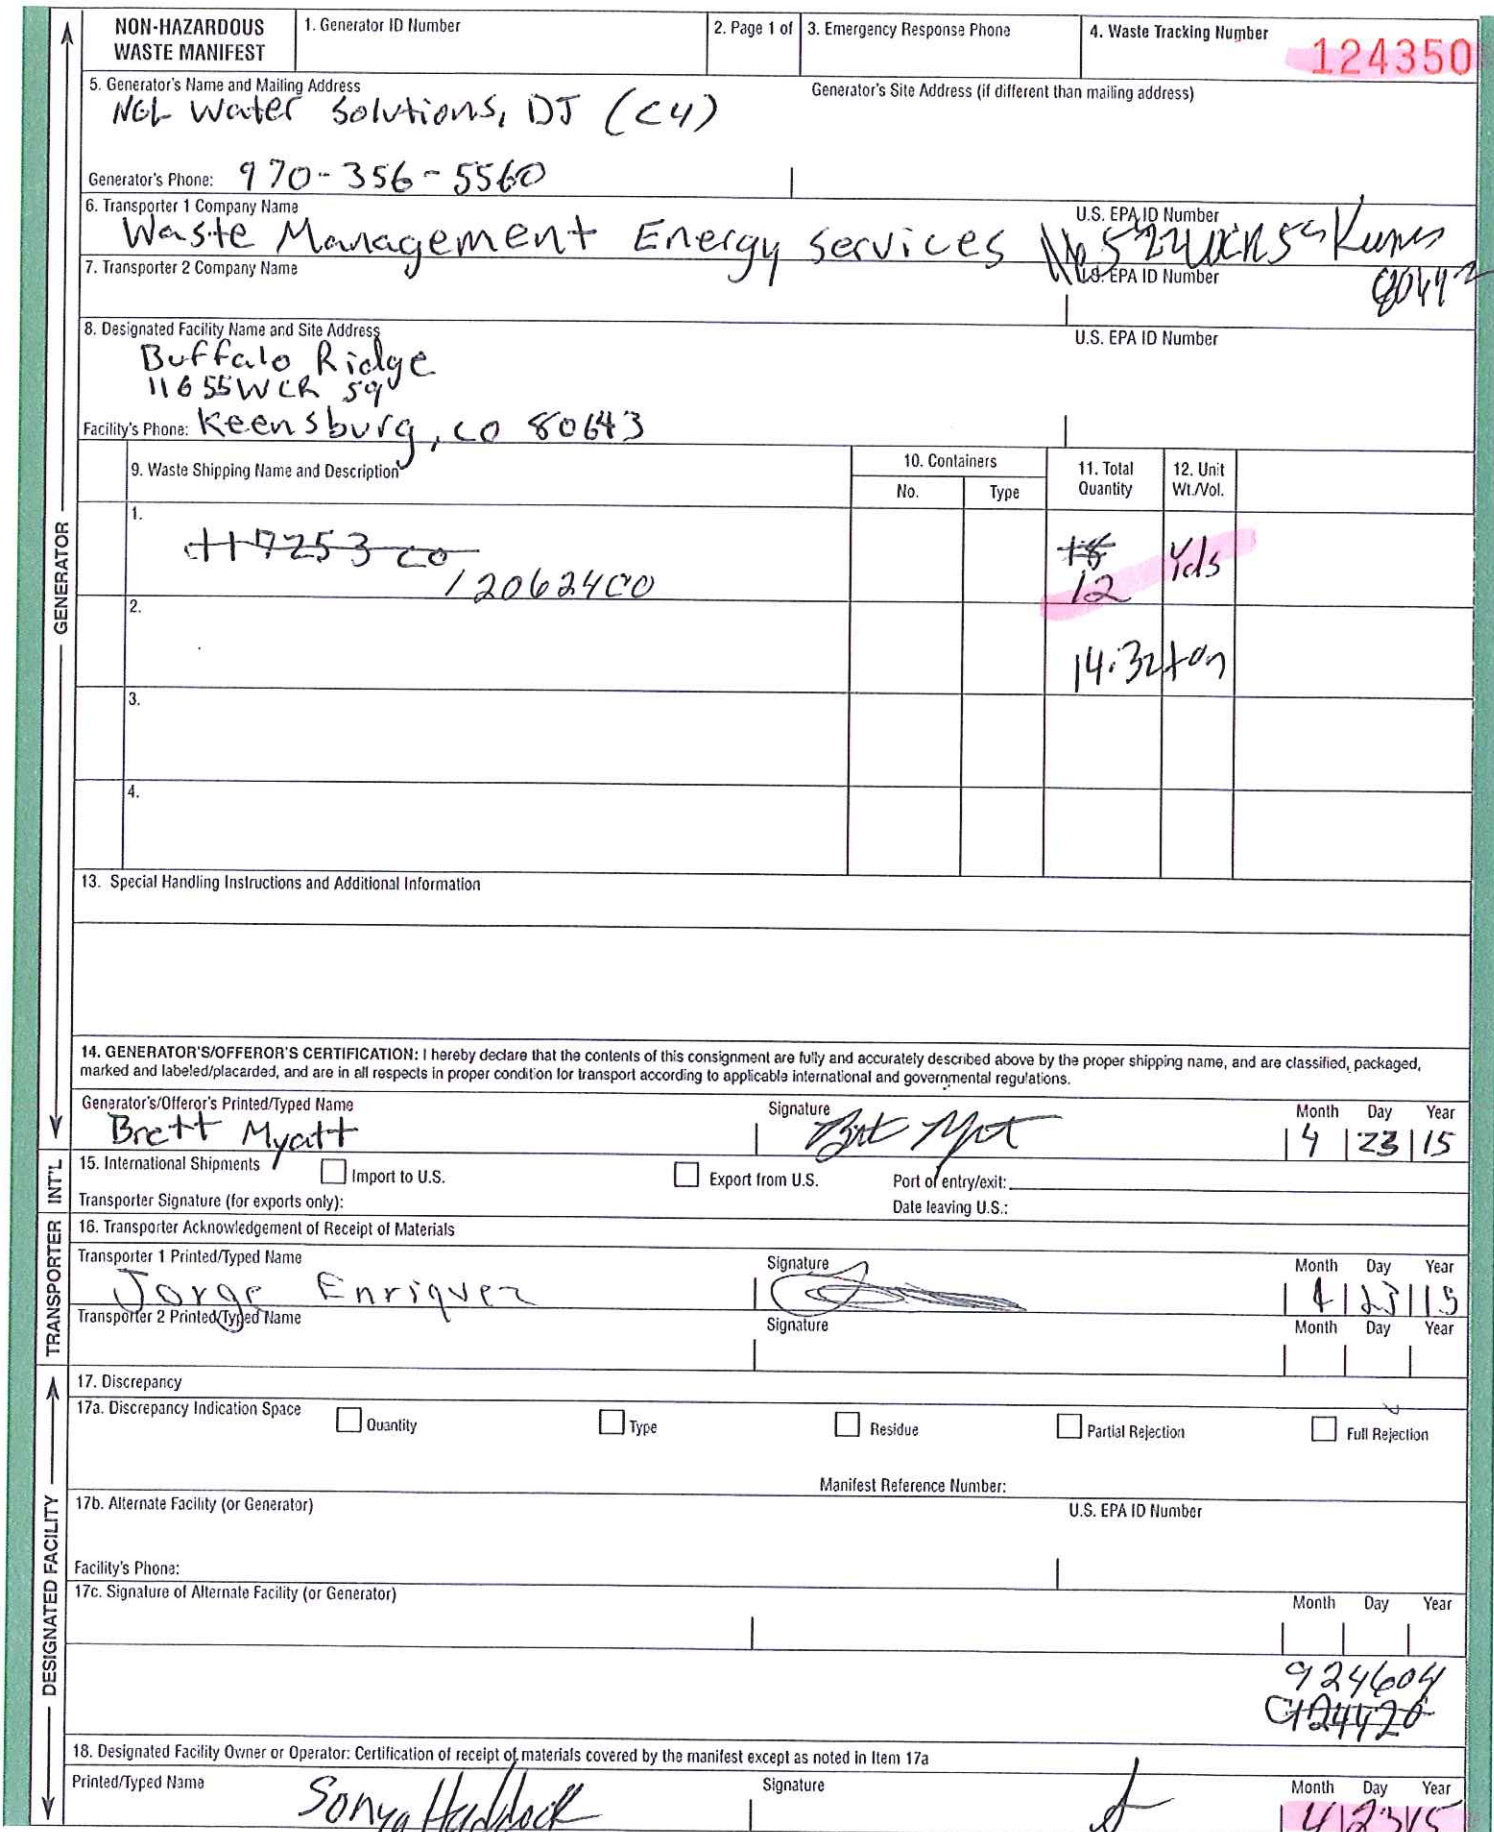 NON-HAZARDOUS WASTE MANIFEST
1. Generator ID Number
2. Page 1 of
3. Emergency Response Phone
4. Waste Tracking Number
124350
5. Generator's Name and Mailing Address
Generator's Site Address (if different than mailing address)
NGL Water Solutions, DJ (C4)
Generator's Phone: 970-356-5560
6. Transporter 1 Company Name
U.S. EPA ID Number
Waste Management Energy Services
7. Transporter 2 Company Name
U.S. EPA ID Number
8. Designated Facility Name and Site Address
U.S. EPA ID Number
Buffalo Ridge
11655 WCR 59
Facility's Phone: Keensburg, CO 80643
9. Waste Shipping Name and Description
10. Containers
No.
Type
11. Total Quantity
12. Unit Wt./Vol.
1.
117253 CO
18
Yds
120624CO
12
2.
14.32 ton
3.
4.
13. Special Handling Instructions and Additional Information
14. GENERATOR'S/OFFEROR'S CERTIFICATION: I hereby declare that the contents of this consignment are fully and accurately described above by the proper shipping name, and are classified, packaged,
marked and labeled/placarded, and are in all respects in proper condition for transport according to applicable international and governmental regulations.
Generator's/Offeror's Printed/Typed Name
Signature
Month Day Year
Brett Myatt
4 23 15
15. International Shipments
Import to U.S.
Export from U.S.
Port of entry/exit:
Transporter Signature (for exports only):
Date leaving U.S.:
16. Transporter Acknowledgement of Receipt of Materials
Transporter 1 Printed/Typed Name
Signature
Month Day Year
Jorge Enriquez
4 23 15
Transporter 2 Printed/Typed Name
Signature
Month Day Year
17. Discrepancy
17a. Discrepancy Indication Space
Quantity
Type
Residue
Partial Rejection
Full Rejection
Manifest Reference Number:
17b. Alternate Facility (or Generator)
U.S. EPA ID Number
Facility's Phone:
17c. Signature of Alternate Facility (or Generator)
Month Day Year
924604
18. Designated Facility Owner or Operator: Certification of receipt of materials covered by the manifest except as noted in Item 17a
Printed/Typed Name
Signature
Month Day Year
Sonya Haddock
4 23 15
GENERATOR
INT'L
TRANSPORTER
DESIGNATED FACILITY